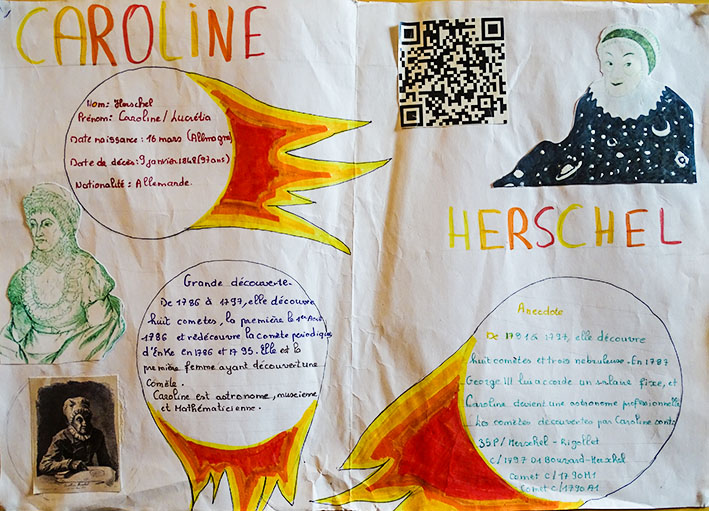 CAROLINE
Nom: Herschel
Prénom: Caroline/Lucrétia
Date naissance: 16 mars (Allmagne)
Date de décès: 9 janvier 1848 (97ans)
Nationalité: Allemande.
HERSCHEL
Grande découverte.
De 1786 à 1797, elle découvre
huit comètes, la première le 1er Août
1786 et redécouvre la comète periodique
d'Enke en 1786 et 1795. Elle est la
première femme ayant découvert une
comète.
Caroline est astronome, museienne
et Mathématicienne.
Anecdote
De 1791 à 1797, elle découvre
huit comètes et trois nebuleuse. En 1787
George III lui accorde un salaire fixe, et
Caroline devient une astronome professionnelle
Les comètes découvertes par Caroline sont:
35P/Herschel-Rigollet
C/1797 01 Bouvard-Herschel
Comet C/1790 H1
Comet C/1790 A1